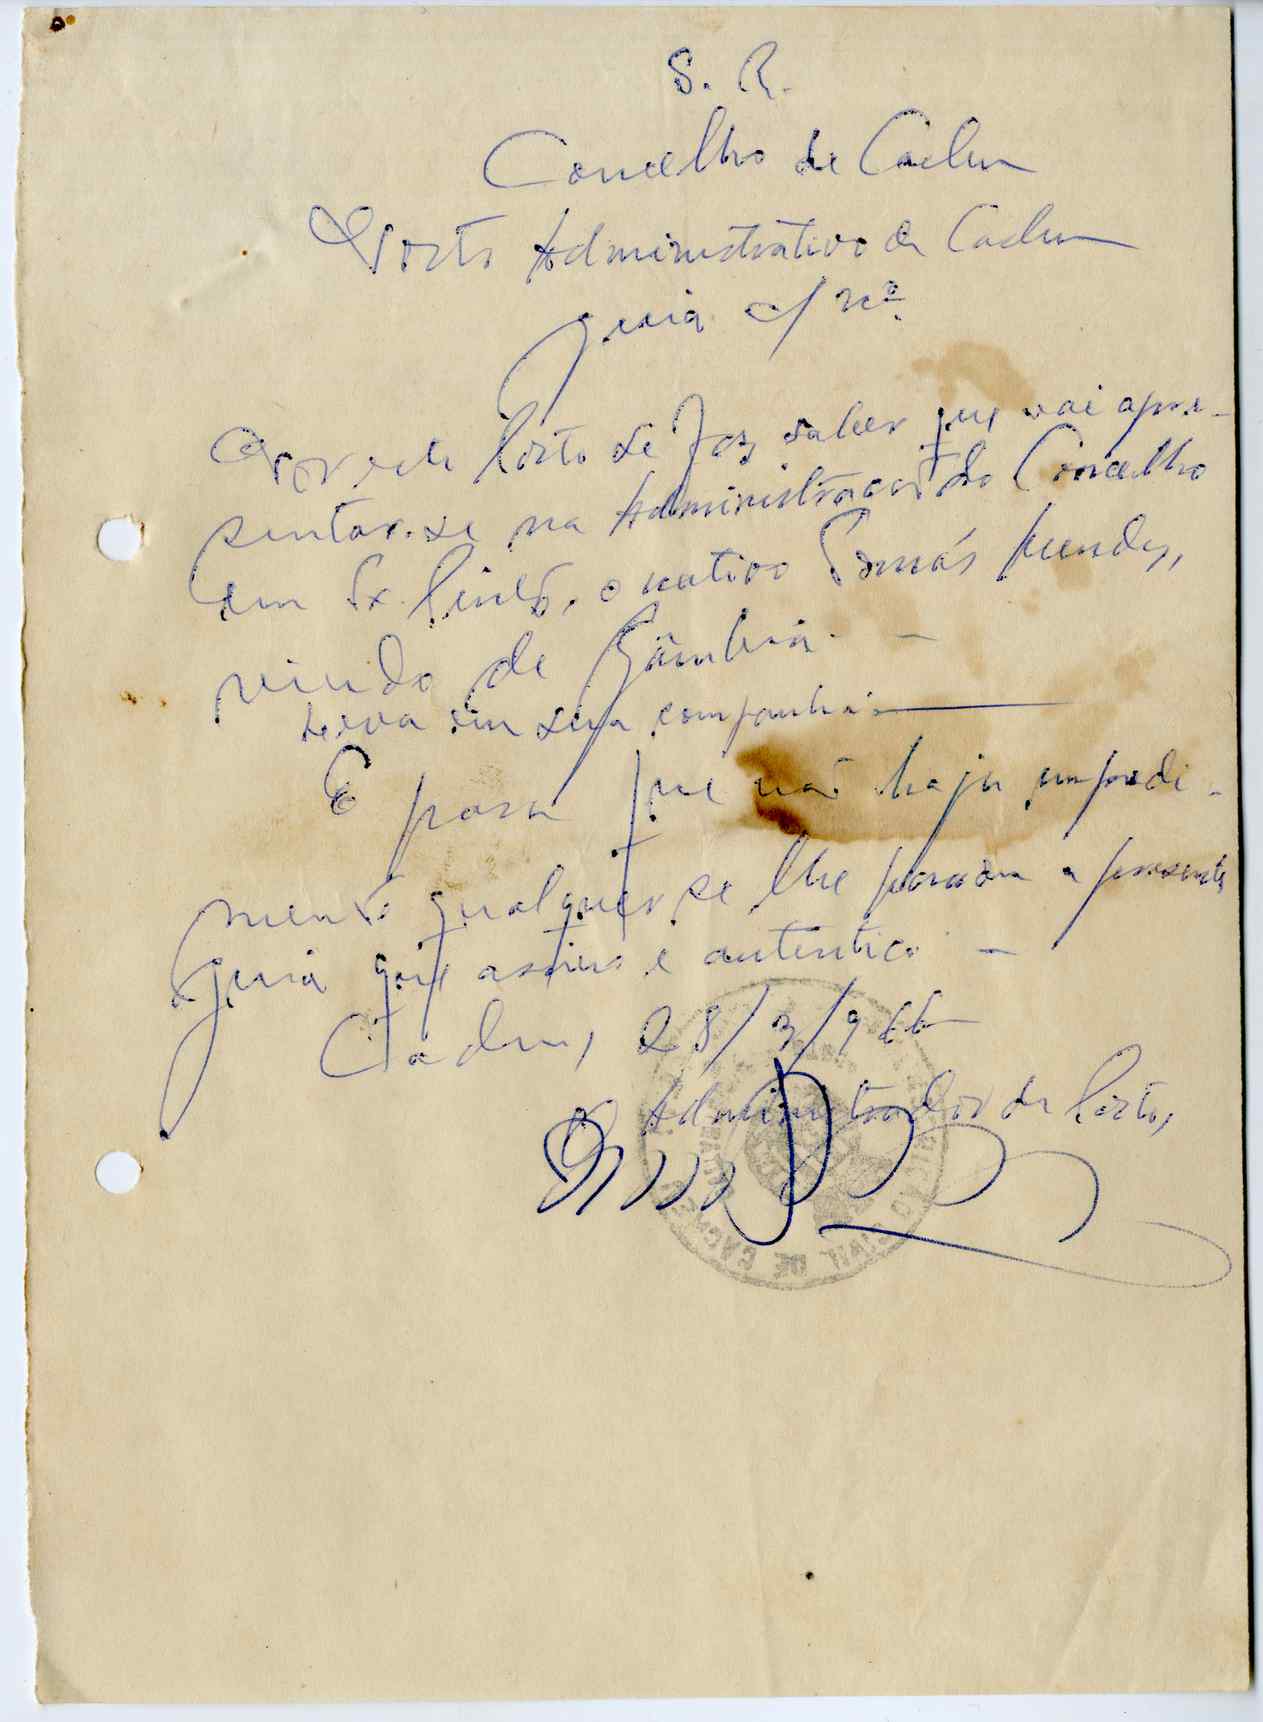 S. R.
Concelho de Cacheu
Posto Administrativo de Cacheu
Guia s/ nº
Por este Posto se faz saber que vai apre-
sentar-se na Administração do Concelho
em o nativo Tomás Mendes,
vindo de Gâmbia. —
Leva em sua companhia: —
E para que não haja empedi-
mento qualquer se lhe passou a presente
guia que assino e autentico —
Cacheu, 28/3/966
Administrador de Posto,
DE CACHEU